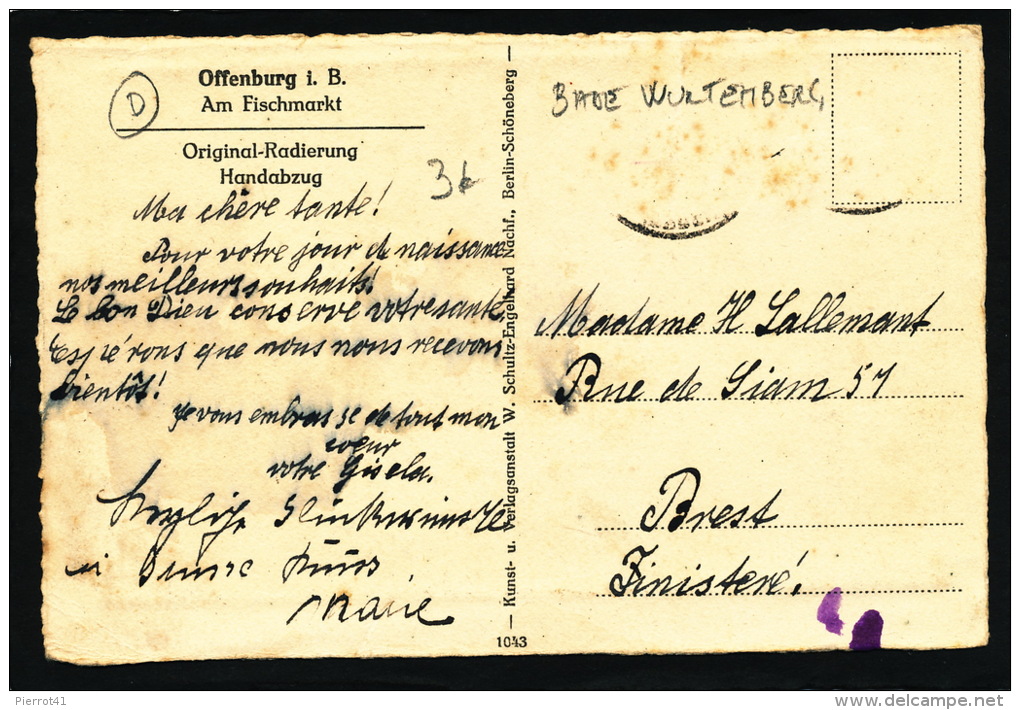 Offenburg i. B.
Am Fischmarkt
D
Original-Radierung
Handabzug
3€
Ma chère tante!
Pour votre jour de naissance
nos meilleurs souhaits!
Le bon Dieu conserve votre santé.
Espérons que nous nous recevons
bientôt!
Je vous embrasse de tout mon
coeur
votre Gisela.
Herzliche Glückwünsche
Kunst- u. Verlagsanstalt W. Schultz-Engelhard Nachf., Berlin-Schöneberg
1043
BADE WURTEMBERG
Madame H Lallemant
Rue de Siam 51
Brest
Finisteré.
Pierrot41
www.delcampe.net